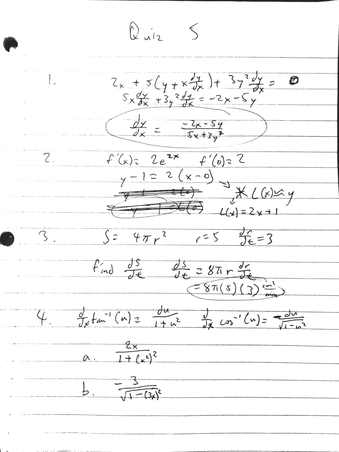 Quiz 5
1. 2x + 5(y + x dy/dx) + 3y² dy/dx = 0
5x dy/dx + 3y² dy/dx = -2x - 5y
dy/dx = (-2x - 5y)/(5x + 3y²)
2. f'(x) = 2e^(2x) f'(0) = 2
y - 1 = 2(x - 0)
* L(x) ≈ y
L(x) = 2x + 1
3. S = 4πr² r = 5 dr/dt = 3
find dS/dt dS/dt = 8πr dr/dt
= 8π(5)(3) cm²/min
4. d/dx tan⁻¹(u) = du/(1 + u²) d/dx cos⁻¹(u) = -du/√(1 - u²)
a. 2x/(1 + (x²)²)
b. -3/√(1 - (3x)²)